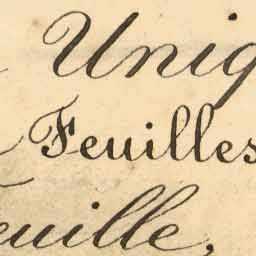 Uniq
Feuilles
euille,